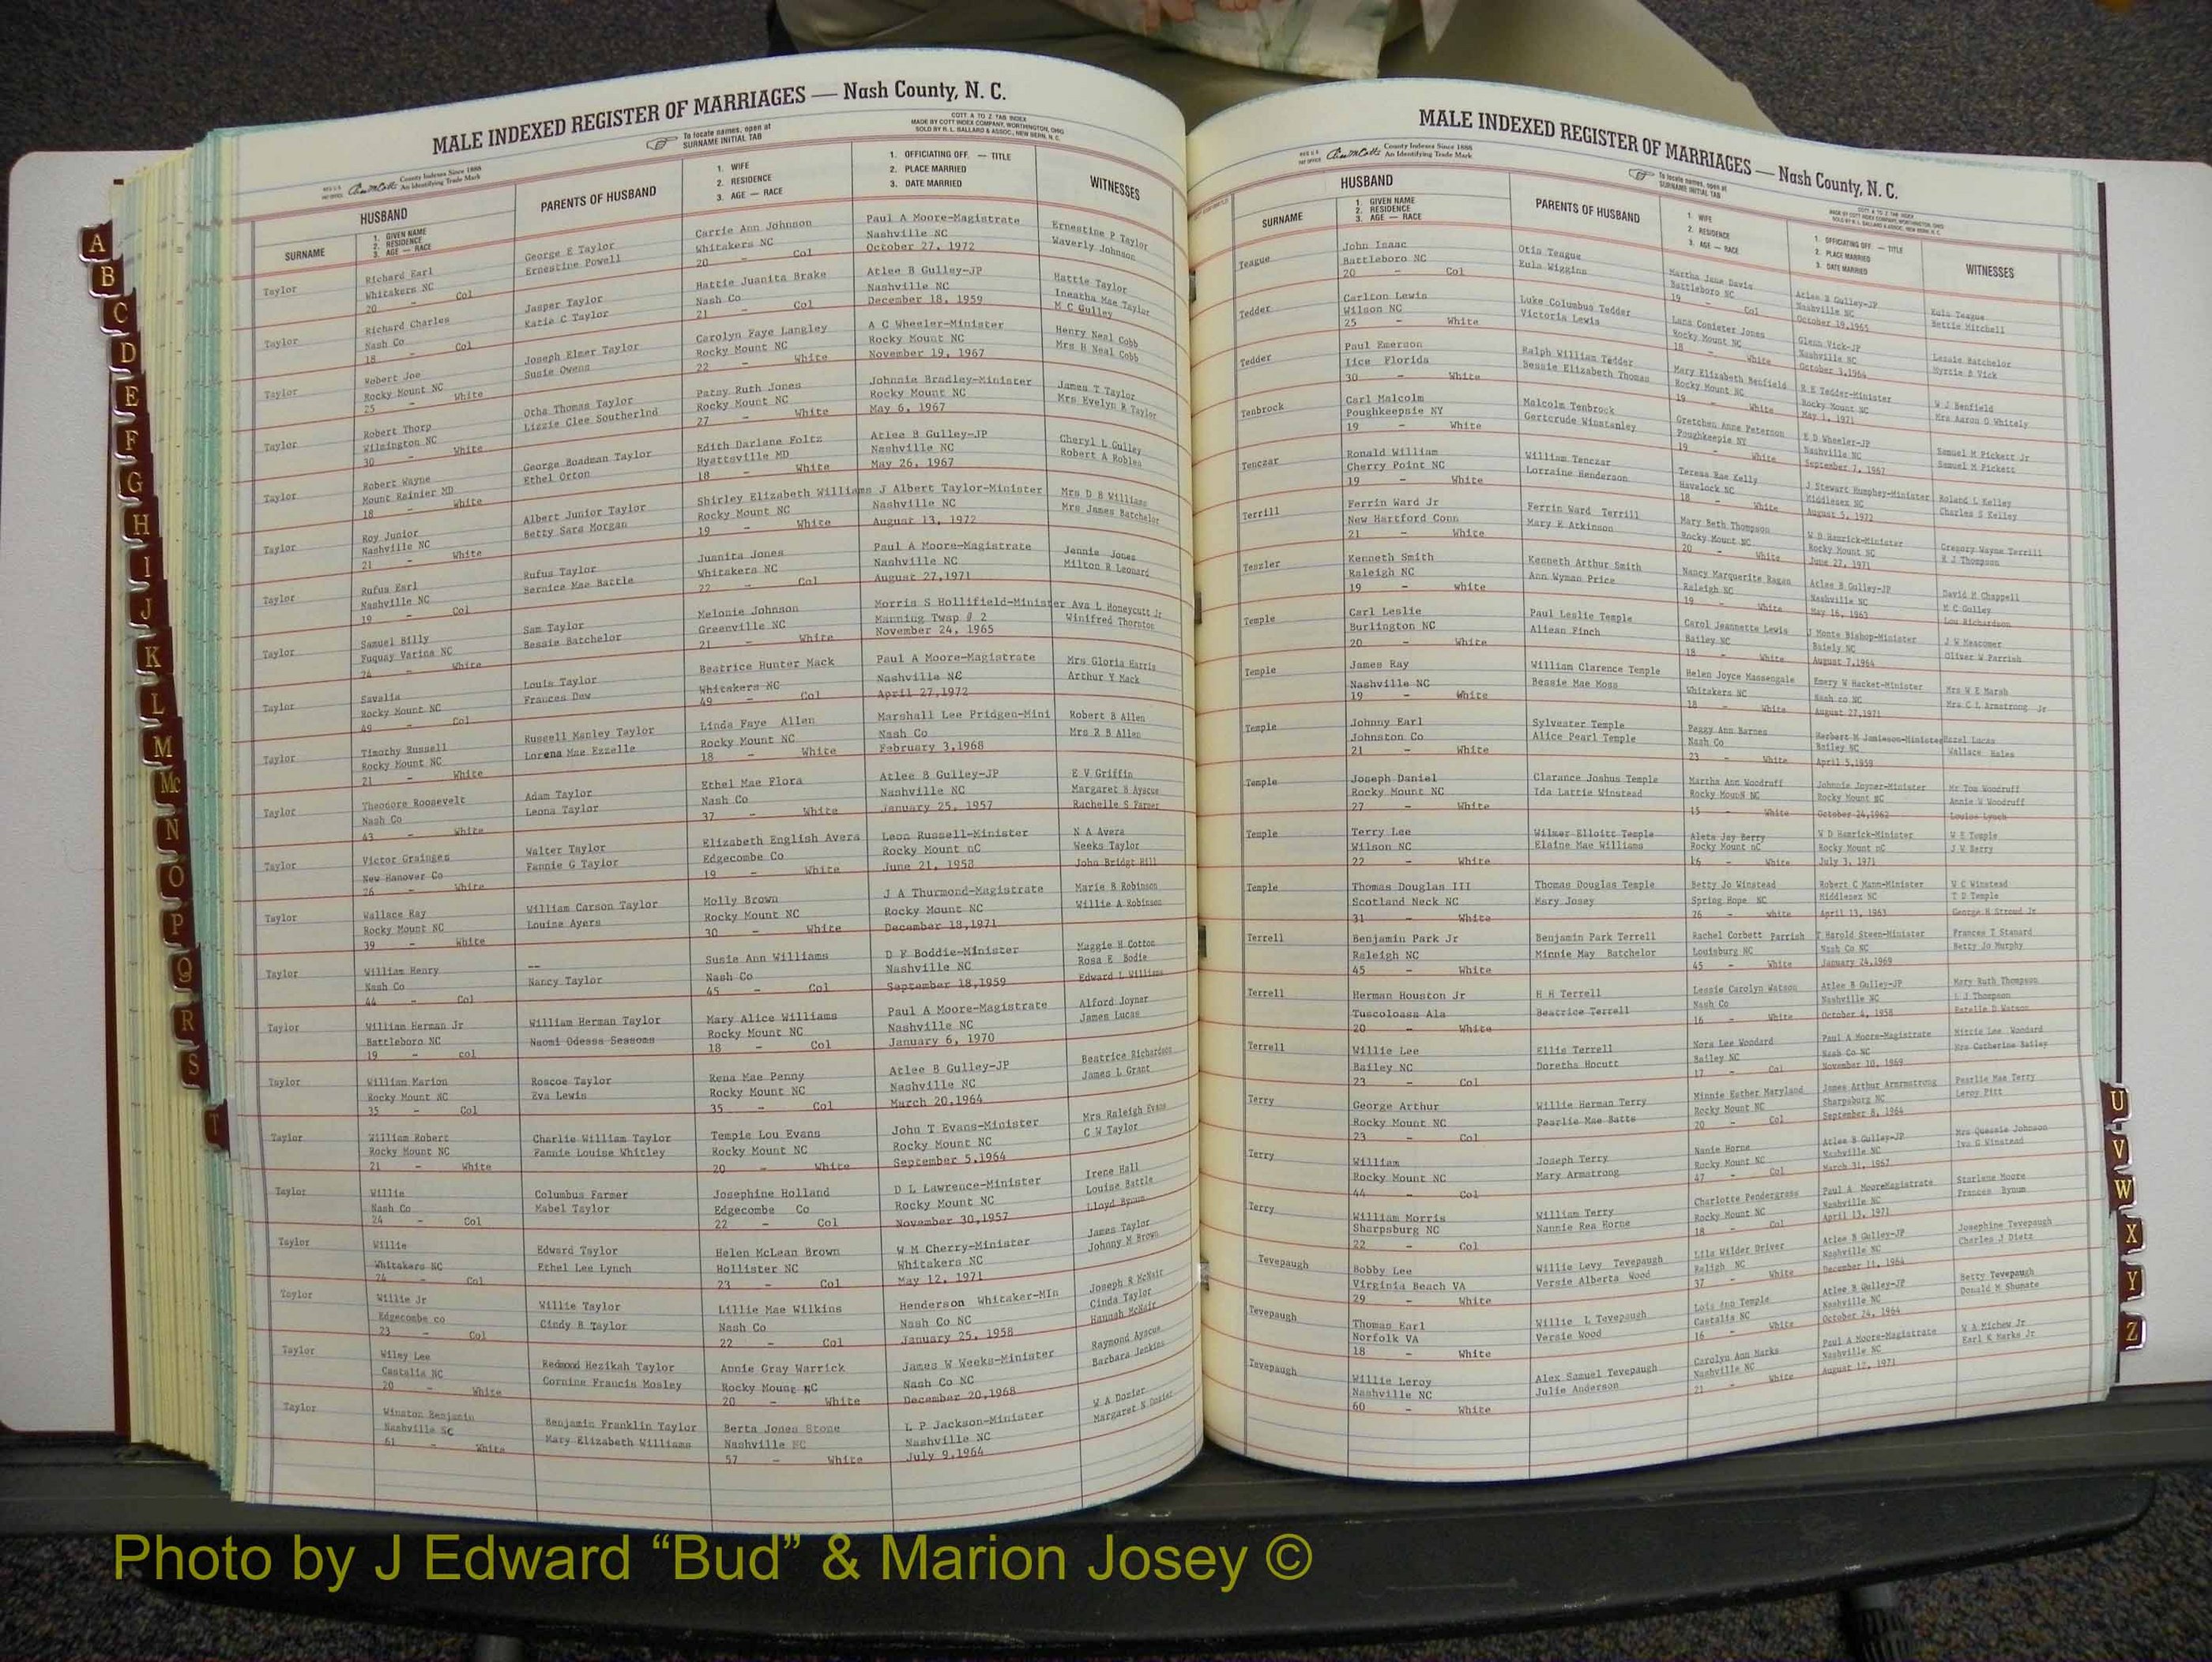 MALE INDEXED REGISTER OF MARRIAGES — Nash County, N. C.
To locate names, open at
SURNAME INITIAL TAB
COTT A TO Z TAB INDEX
MADE BY COTT INDEX COMPANY, WORTHINGTON, OHIO
SOLD BY R. L. BALLARD & ASSOC., NEW BERN, N. C.
County Indexes Since 1888
An Identifying Trade Mark
HUSBAND
SURNAME
1. GIVEN NAME
2. RESIDENCE
3. AGE — RACE
PARENTS OF HUSBAND
1. WIFE
2. RESIDENCE
3. AGE — RACE
1. OFFICIATING OFF. — TITLE
2. PLACE MARRIED
3. DATE MARRIED
WITNESSES
Taylor Richard Earl George E Taylor Carrie Ann Johnson Paul A Moore-Magistrate Ernestine P Taylor
Whitakers NC Ernestine Powell Whitakers NC Nashville NC Waverly Johnson
20 - Col 20 - Col October 27, 1972
Taylor Richard Charles Jasper Taylor Hattie Juanita Brake Atlee B Gulley-JP Hattie Taylor
Nash Co Katie C Taylor Nash Co Nashville NC Ineatha Mae Taylor
18 - Col 21 - Col December 18, 1959 M C Gulley
Taylor Robert Joe Joseph Elmer Taylor Carolyn Faye Langley A C Wheeler-Minister Henry Neal Cobb
Rocky Mount NC Susie Owens Rocky Mount NC Rocky Mount NC Mrs H Neal Cobb
25 - White 22 - White November 19, 1967
Taylor Robert Thorp Otha Thomas Taylor Patsy Ruth Jones Johnnie Bradley-Minister James T Taylor
Wilmington NC Lizzie Clee Southerlnd Rocky Mount NC Rocky Mount NC Mrs Evelyn R Taylor
30 - White 27 - White May 6, 1967
Taylor Robert Wayne George Boadman Taylor Edith Darlene Foltz Atlee B Gulley-JP Cheryl L Gulley
Mount Rainier MD Ethel Orton Hyattsville MD Nashville NC Robert A Robles
18 - White 18 - White May 26, 1967
Taylor Roy Junior Albert Junior Taylor Shirley Elizabeth Williams J Albert Taylor-Minister Mrs D B Williams
Nashville NC Betty Sara Morgan Rocky Mount NC Nashville NC Mrs James Batchelor
21 - White 19 - White August 13, 1972
Taylor Rufus Earl Rufus Taylor Juanita Jones Paul A Moore-Magistrate Jennie Jones
Nashville NC Bernice Mae Battle Whitakers NC Nashville NC Milton R Leonard
19 - Col 22 - Col August 27,1971
Taylor Samuel Billy Sam Taylor Melonie Johnson Morris S Hollifield-Minister Ava L Honeycutt Jr
Fuquay Varina NC Bessie Batchelor Greenville NC Manning Twsp # 2 Winifred Thornton
24 - White 21 - White November 24, 1965
Taylor Savalia Louis Taylor Beatrice Hunter Mack Paul A Moore-Magistrate Mrs Gloria Harris
Rocky Mount NC Frances Dew Whitakers NC Nashville NC Arthur Y Mack
49 - Col 49 - Col April 27,1972
Taylor Timothy Russell Russell Manley Taylor Linda Faye Allen Marshall Lee Pridgen-Mini Robert B Allen
Rocky Mount NC Lorena Mae Ezzelle Rocky Mount NC Nash Co Mrs R B Allen
21 - White 18 - White February 3,1968
Taylor Theodore Roosevelt Adam Taylor Ethel Mae Flora Atlee B Gulley-JP E V Griffin
Nash Co Leona Taylor Nash Co Nashville NC Margaret B Ayscue
43 - White 37 - White January 25, 1957 Rachelle S Farmer
Taylor Victor Grainger Walter Taylor Elizabeth English Avera Leon Russell-Minister N A Avera
New Hanover Co Fannie G Taylor Edgecombe Co Rocky Mount nC Weeks Taylor
26 - White 19 - White June 21, 1958 John Bridgt Hill
Taylor Wallace Ray William Carson Taylor Molly Brown J A Thurmond-Magistrate Marie B Robinson
Rocky Mount NC Louise Ayers Rocky Mount NC Rocky Mount NC Willie A Robinson
39 - White 30 - White December 18,1971
Taylor William Henry -- Susie Ann Williams D F Boddie-Minister Maggie H Cotton
Nash Co Nancy Taylor Nash Co Nashville NC Rosa E Bodie
44 - Col 45 - Col September 18,1959 Edward L Williams
Taylor William Herman Jr William Herman Taylor Mary Alice Williams Paul A Moore-Magistrate Alford Joyner
Battleboro NC Naomi Odessa Sessoms Rocky Mount NC Nashville NC James Lucas
19 - col 18 - Col January 6, 1970
Taylor William Marion Roscoe Taylor Rena Mae Penny Atlee B Gulley-JP Beatrice Richardson
Rocky Mount NC Eva Lewis Rocky Mount NC Nashville NC James L Grant
35 - Col 35 - Col March 20,1964
Taylor William Robert Charlie William Taylor Temple Lou Evans John T Evans-Minister Mrs Raleigh Evans
Rocky Mount NC Fannie Louise Whitley Rocky Mount NC Rocky Mount NC C W Taylor
21 - White 20 - White September 5,1964
Taylor Willie Columbus Farmer Josephine Holland D L Lawrence-Minister Irene Hall
Nash Co Mabel Taylor Edgecombe Co Rocky Mount NC Louise Battle
24 - Col 22 - Col November 30,1957 Lloyd Bynum
Taylor Willie Edward Taylor Helen McLean Brown W M Cherry-Minister James Taylor
Whitakers NC Ethel Lee Lynch Hollister NC Whitakers NC Johnny M Brown
24 - Col 23 - Col May 12, 1971
Taylor Willie Jr Willie Taylor Lillie Mae Wilkins Henderson Whitaker-MIn Joseph R McNair
Edgecombe co Cindy B Taylor Nash Co Nash Co NC Cinda Taylor
23 - Col 22 - Col January 25, 1958 Hannah McNair
Taylor Wiley Lee Redmond Hezikah Taylor Annie Gray Warrick James W Weeks-Minister Raymond Ayscue
Castalia NC Cornine Francis Mosley Rocky Mount NC Nash Co NC Barbara Jenkins
20 - White 20 - White December 20,1968
Taylor Winston Benjamin Benjamin Franklin Taylor Berta Jones Stone L P Jackson-Minister W A Dozier
Nashville NC Mary Elizabeth Williams Nashville NC Nashville NC Margaret N Dozier
61 - White 57 - White July 9,1964
MALE INDEXED REGISTER OF MARRIAGES — Nash County, N. C.
County Indexes Since 1888
An Identifying Trade Mark
To locate names, open at
SURNAME INITIAL TAB
HUSBAND
SURNAME
1. GIVEN NAME
2. RESIDENCE
3. AGE — RACE
PARENTS OF HUSBAND
1. WIFE
2. RESIDENCE
3. AGE — RACE
1. OFFICIATING OFF. — TITLE
2. PLACE MARRIED
3. DATE MARRIED
WITNESSES
Teague John Isaac Otis Teague Martha Jane Davis Atlee B Gulley-JP Eula Teague
Battleboro NC Eula Wiggins Battleboro NC Nashville NC Bettie Mitchell
20 - Col 19 - Col October 19,1965
Tedder Carlton Lewis Luke Columbus Tedder Lana Conister Jones Glenn Vick-JP Lessie Batchelor
Wilson NC Victoria Lewis Rocky Mount NC Nashville NC Myrtie B Vick
25 - White 18 - White October 3,1964
Tedder Paul Emerson Ralph William Tedder Mary Elizabeth Benfield R E Tedder-Minister W J Benfield
Iice Florida Bessie Elizabeth Thomas Rocky Mount NC Rocky Mount NC Mrs Aaron O Whitely
30 - White 19 - White May 1, 1971
Tenbrock Carl Malcolm Malcolm Tenbrock Gretchen Anne Peterson E D Wheeler-JP Samuel M Pickett Jr
Poughkeepsie NY Gertcrude Winstanley Poughkeepie NY Nashville NC Samuel M Pickett
19 - White 19 - White September 7, 1967
Tenczar Ronald William William Tenczar Teresa Rae Kelly J Stewart Humphey-Minister Roland L Kelley
Cherry Point NC Lorraine Henderson Havelock NC Middlesex NC Charles S Kelley
19 - White 18 - White August 5, 1972
Terrill Ferrin Ward Jr Ferrin Ward Terrill Mary Beth Thompson W D Hamrick-Minister Gregory Wayne Terrill
New Hartford Conn Mary E Atkinson Rocky Mount NC Rocky Mount NC R J Thompson
21 - White 20 - White June 27, 1971
Teszler Kenneth Smith Kenneth Arthur Smith Nancy Marquerite Ragan Atlee B Gulley-JP David M Chappell
Raleigh NC Ann Wyman Price Raleigh NC Nashville NC M C Gulley
19 - white 19 - White May 16, 1963 Lou Richardson
Temple Carl Leslie Paul Leslie Temple Carol Jeannette Lewis J Monte Bishop-Minister J W Meacomer
Burlington NC Aliean Finch Bailey NC Baiely NC Oliver W Parrish
20 - White 18 - White August 7,1964
Temple James Ray William Clarence Temple Helen Joyce Massengale Emery W Hacket-Minister Mrs W E Marsh
Nashville NC Bessie Mae Moss Whitakers NC Nash co NC Mrs C L Armstrong Jr
19 - White 18 - White August 27,1971
Temple Johnny Earl Sylvester Temple Peggy Ann Barnes Herbert M Jamieson-Minister Hazel Lucas
Johnston Co Alice Pearl Temple Nash Co Bailey NC Wallace Hales
21 - White 23 - White April 5,1959
Temple Joseph Daniel Clarance Joshus Temple Martha Ann Woodruff Johnnie Joyner-Minister Mr Tom Woodruff
Rocky Mount NC Ida Lattie Winstead Rocky Mount NC Rocky Mount NC Annie W Woodruff
27 - White 15 - White October 24,1962 Louise Lynch
Temple Terry Lee Wilmer Elloitt Temple Aleta Jay Berry W D Hamrick-Minister W E Temple
Wilson NC Elaine Mae Williams Rocky Mount nC Rocky Mount nC J.W Berry
22 - White 16 - White July 3, 1971
Temple Thomas Douglas III Thomas Douglas Temple Betty Jo Winstead Robert C Mann-Minister W C Winstead
Scotland Neck NC Mary Josey Spring Hope NC Middlesex NC T D Temple
31 - White 26 - white April 13, 1963 George H Stroud Jr
Terrell Benjamin Park Jr Benjamin Park Terrell Rachel Corbett Parrish T Harold Steen-Minister Frances T Stanard
Raleigh NC Minnie May Batchelor Louisburg NC Nash Co NC Betty Jo Murphy
45 - White 45 - White January 24,1969
Terrell Herman Houston Jr H H Terrell Lessie Carolyn Watson Atlee B Gulley-JP Mary Ruth Thompson
Tuscoloasa Ala Beatrice Terrell Nash Co Nashville NC L J Thompson
20 - White 16 - White October 4, 1958 Estelle D Watson
Terrell Willie Lee Ellis Terrell Nora Lee Woodard Paul A Moore-Magistrate Mittie Lee Woodard
Bailey NC Doretha Hocutt Bailey NC Nash Co NC Mrs Catherine Bailey
23 - Col 17 - Col November 10, 1969
Terry George Arthur Willie Herman Terry Minnie Esther Maryland James Arthur Armrmstrong Pearlie Mae Terry
Rocky Mount NC Pearlie Mae Batts Rocky Mount NC Sharpsburg NC Leroy Pitt
23 - Col 20 - Col September 8, 1964
Terry William Joseph Terry Nanie Horne Atlee B Gulley-JP Mrs Queesie Johnson
Rocky Mount NC Mary Armstrong Rocky Mount NC Nashville NC Iva G Winstead
44 - Col 47 - Col March 31, 1967
Terry William Morris William Terry Charlotte Pendergrass Paul A MooreMagistrate Starlene Moore
Sharpsburg NC Nannie Rea Horne Rocky Mount NC Nashville NC Frances Bynum
22 - Col 18 - Col April 13, 1971
Tevepaugh Bobby Lee Willie Levy Tevepaugh Lila Wilder Driver Atlee B Gulley-JP Josephine Tevepaugh
Virginia Beach VA Versie Alberta Wood Raligh NC Nashville NC Charles J Dietz
29 - White 37 - White December 11, 1964
Tevepaugh Thomas Earl Willie L Tevepaugh Lois Ann Temple Atlee B Gulley-JP Betty Tevepaugh
Norfolk VA Versie Wood Castalia NC Nashville NC Donald M Shumate
18 - White 16 - White October 24, 1964
Tevepaugh Willie Leroy Alex Samuel Tevepaugh Carolyn Ann Marks Paul A Moore-Magistrate W A Michew Jr
Nashville NC Julie Anderson Nashville NC Nashville NC Earl K Marks Jr
60 - White 21 - White August 12, 1971
A
B
C
D
E
F
G
H
I
J
K
L
M
Mc
N
O
P
Q
R
S
T
U
V
W
X
Y
Z
Photo by J Edward “Bud” & Marion Josey ©